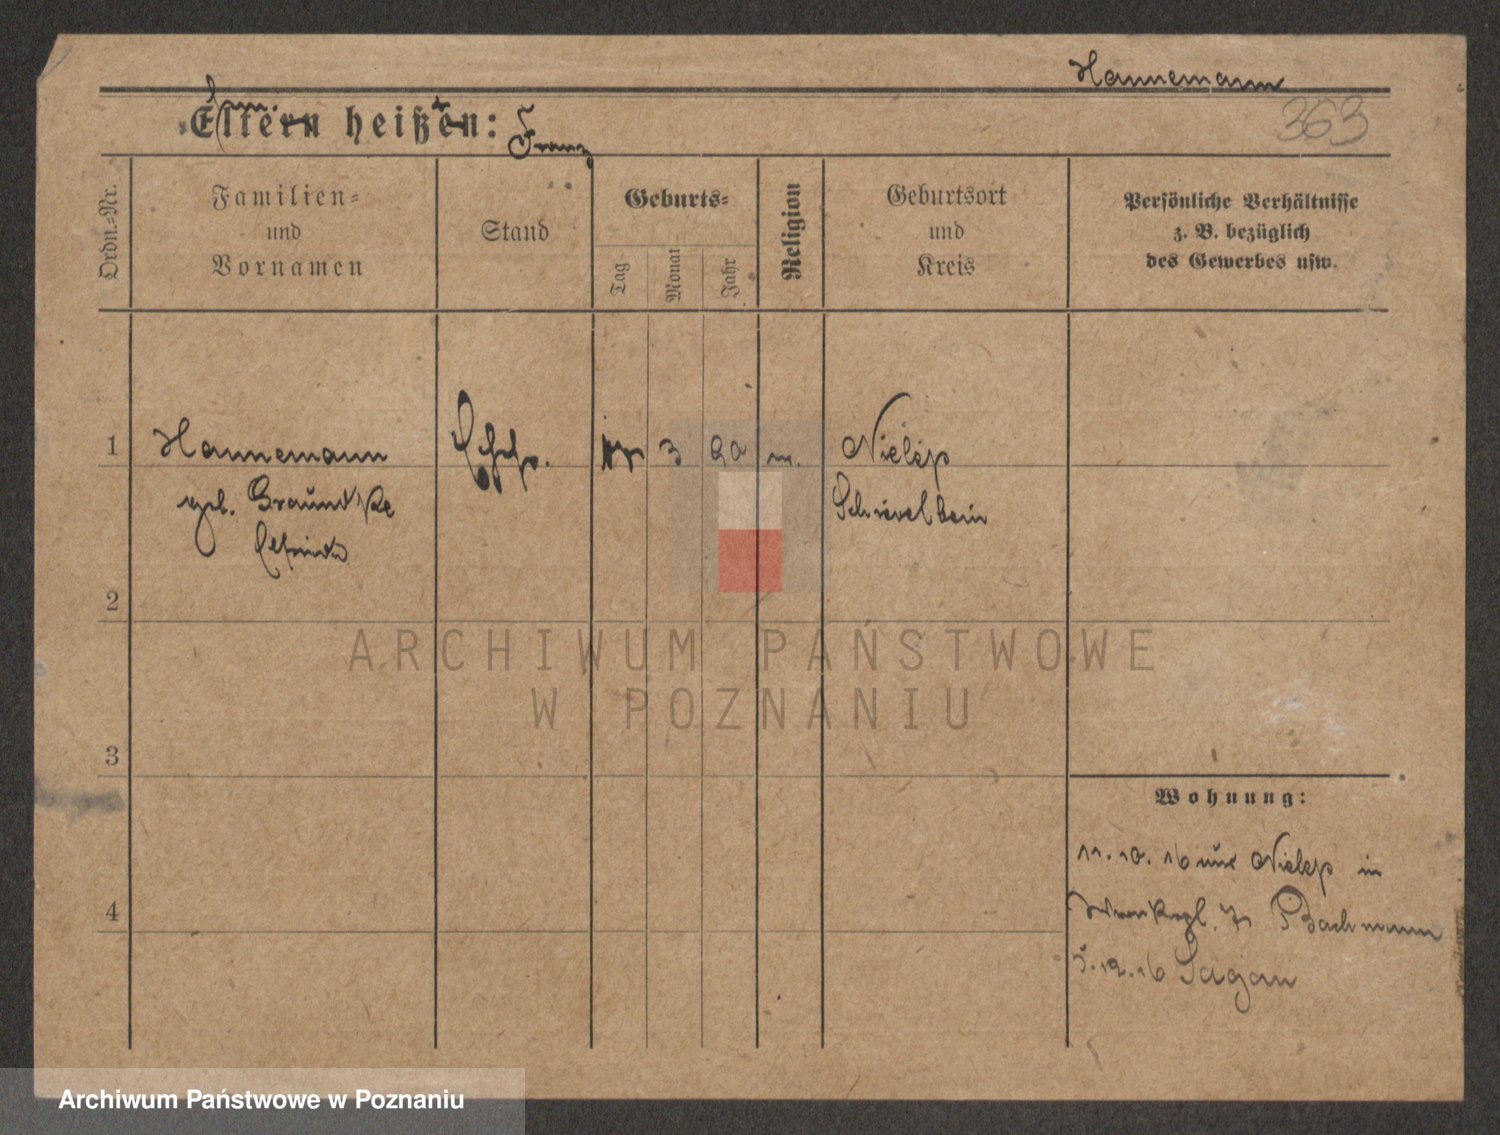 Hannemann
363
Eltern heißen: Franz
Ordn.-Nr.
Familien-
und
Vornamen
Stand
Geburts-
Tag
Monat
Jahr
Religion
Geburtsort
und
Kreis
Persönliche Verhältnisse
z. B. bezüglich
des Gewerbes usw.
1
Hannemann
3
90
Nielep
geb.
Schivelbein
2
ARCHIWUM PAŃSTWOWE
W POZNANIU
3
Wohnung:
11.10.16 Nielep in
4
Bachmann
5.12.16 Sagan
Archiwum Państwowe w Poznaniu